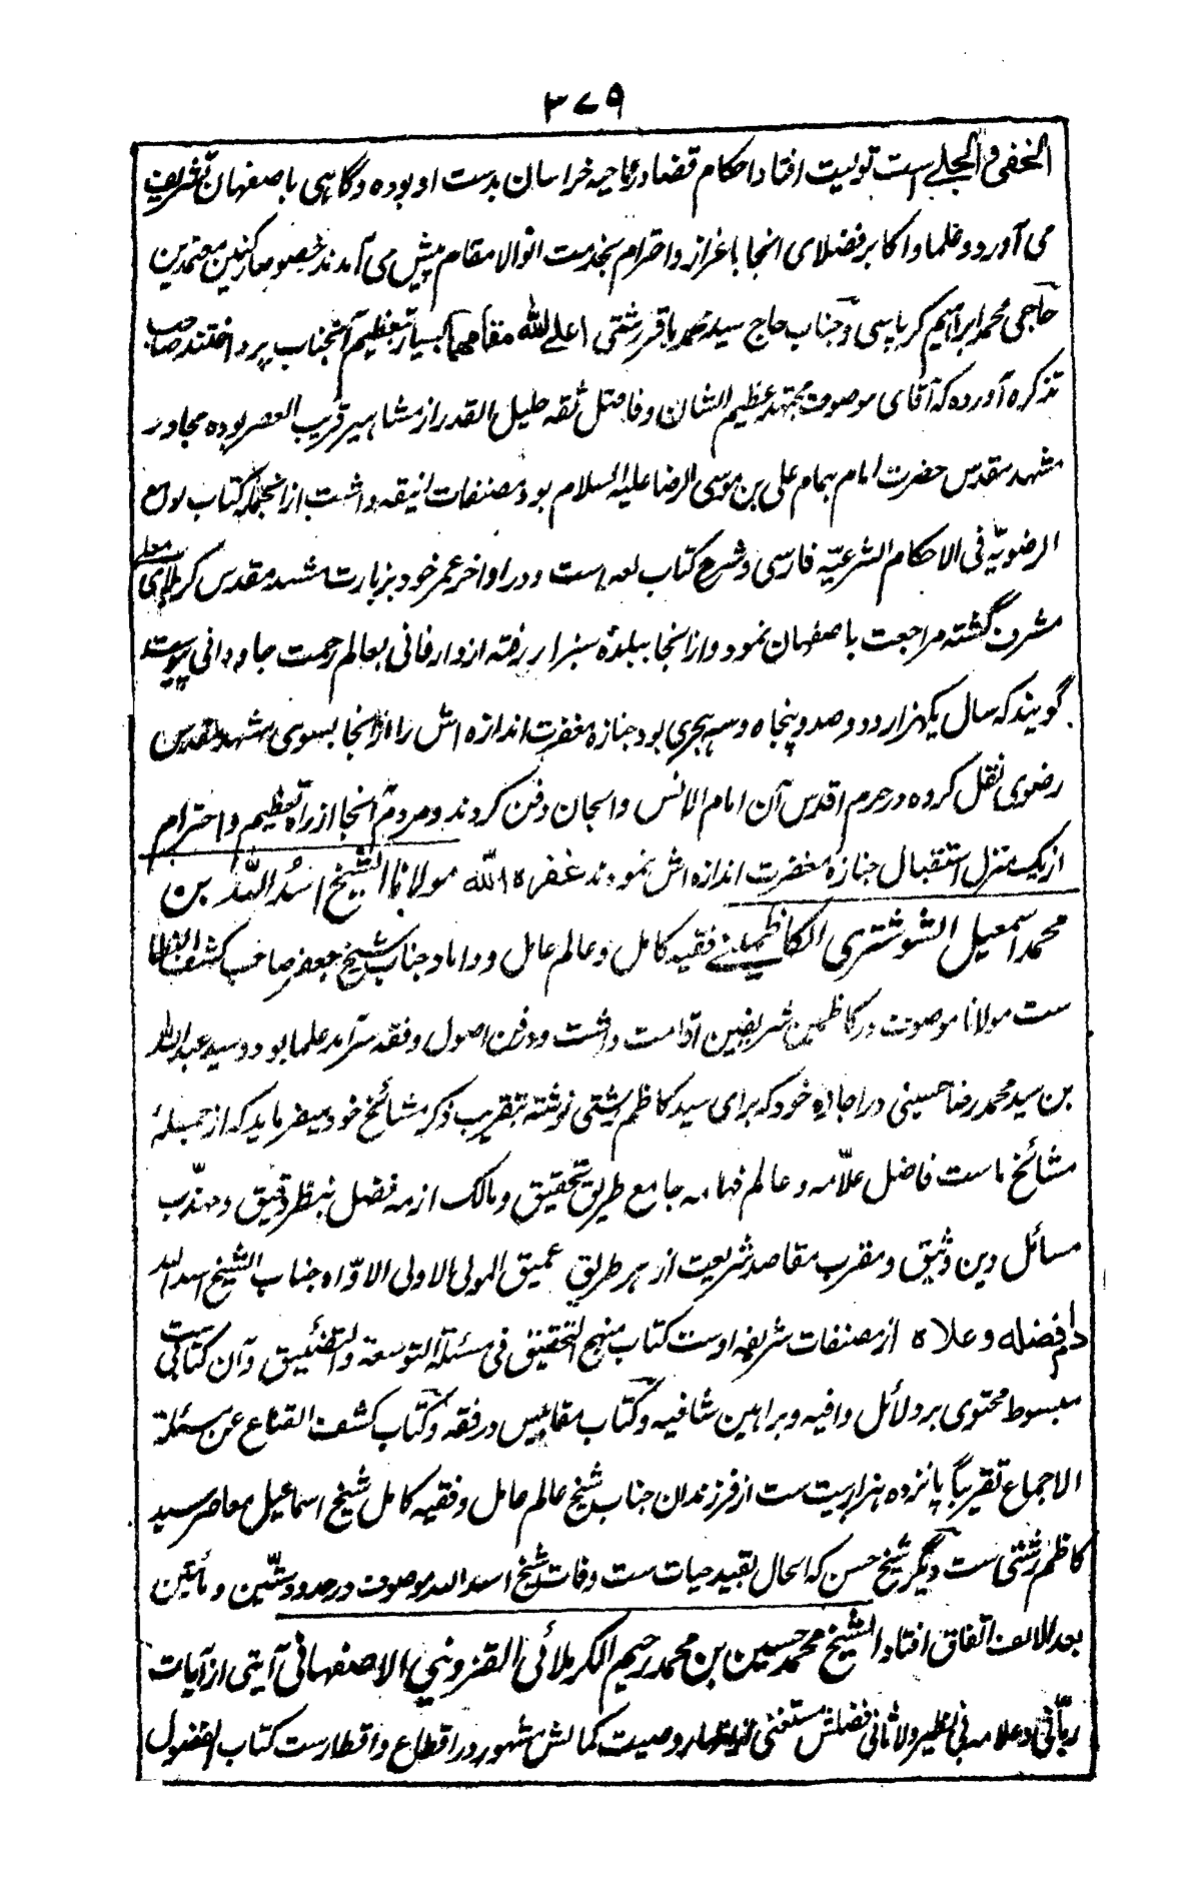 ۳۷۹
الخفی والجلے است تولیت افتا و احکام قضا در ناحیه خراسان بدست او بوده و گاهی باصفهان تشریف
می آورد و علما و اکابر فضلای انجا باعزاز و احترام بخدمت انوالا مقام پیش می آمدند خصوصا رکنین معتمدین
حاجی محمد ابراهیم کرباسی و جناب حاج سید محمد باقر رشتی اعلے الله مقامهما بسیار بتعظیم آنجناب پرداختند صاحب
تذکره آورده که آقای موصوف مجتهد عظیم الشان و فاضل ثقه جلیل القدر از مشاهیر قریب العصر بوده مجاور
مشهد مقدس حضرت امام همام علی بن موسی الرضا علیه السلام بود مصنفات انیقه داشت از انجمله کتاب لوامع
الرضویّه فی الاحکام الشرعیّه فارسی و شرح کتاب لمعه است و در اواخر عمر خود بزیارت مشهد مقدس کربلای معلے
مشرف گشته مراجعت باصفهان نمود و از انجا ببلدهٔ سبزار رفته از دار فانی بعالم رحمت جاودانی پیوست
گویند که سال یکهزار و دو صد و پنجاه و سه هجری بود جنازه مغفرت اندازه اش را از انجا بسوی مشهد مقدس
رضوی نقل کرده در حرم اقدس آن امام الانس و الجان دفن کردند و مردم انجا از راه تعظیم و احترام
از یک منزل استقبال جنازهٔ مغفرت اندازه اش نمودند غفره الله مولانا الشیخ اسدُ الله بن
محمد اسمعیل الشوشتری الکاظمینے فقیه کامل و عالم عامل و داماد جناب شیخ جعفر صاحب کشف الغطا
ست مولانا موصوف در کاظمین شریفین اقامت داشت و در فن اصول و فقه سرآمد علما بود و سید عبدالله
بن سید محمد رضا حسینی در اجازه خود که برای سید کاظم رشتی نوشته بتقریب ذکر مشائخ خود میفرماید که از جمله
مشائخ ما ست فاضل علّامه و عالم فهامه جامع طریق تحقیق و مالک ازمه فضل بنظر دقیق و مهذّب
مسائل دین وثیق و مقرب مقاصد شریعت از هر طریق عمیق المولی الاولی الاوّاه جناب الشیخ اسد الله
دام فضله و علاه از مصنفات شریفه اوست کتاب منهج التحقیق فی مسئلة التوسعة والتضئیق و آن کتابی ست
مبسوط محتوی بر دلائل وافیه و براهین شافیه و کتاب مقابیس در فقه و کتاب کشف القناع عن مسئلة
الاجماع تقریباً پانزده هزار بیت ست از فرزندان جناب شیخ عالم عامل و فقیه کامل شیخ اسماعیل معاصر سید
کاظم رشتی ست و دیگر شیخ حسن که الحال بقید حیات ست وفات شیخ اسد الله موصوف در حدود ستّین و مأتین
بعد الالف اتفاق افتاد الشیخ محمد حسین بن محمد رحیم الکربلائی القزوینی الاصفهانی آیتی از آیات
ربّانی و علامه بی نظیر و لا ثانی فضلش مستغنی از اظهار و صیت کمالش مشهور در اقطاع و اقطار ست کتاب الفصول